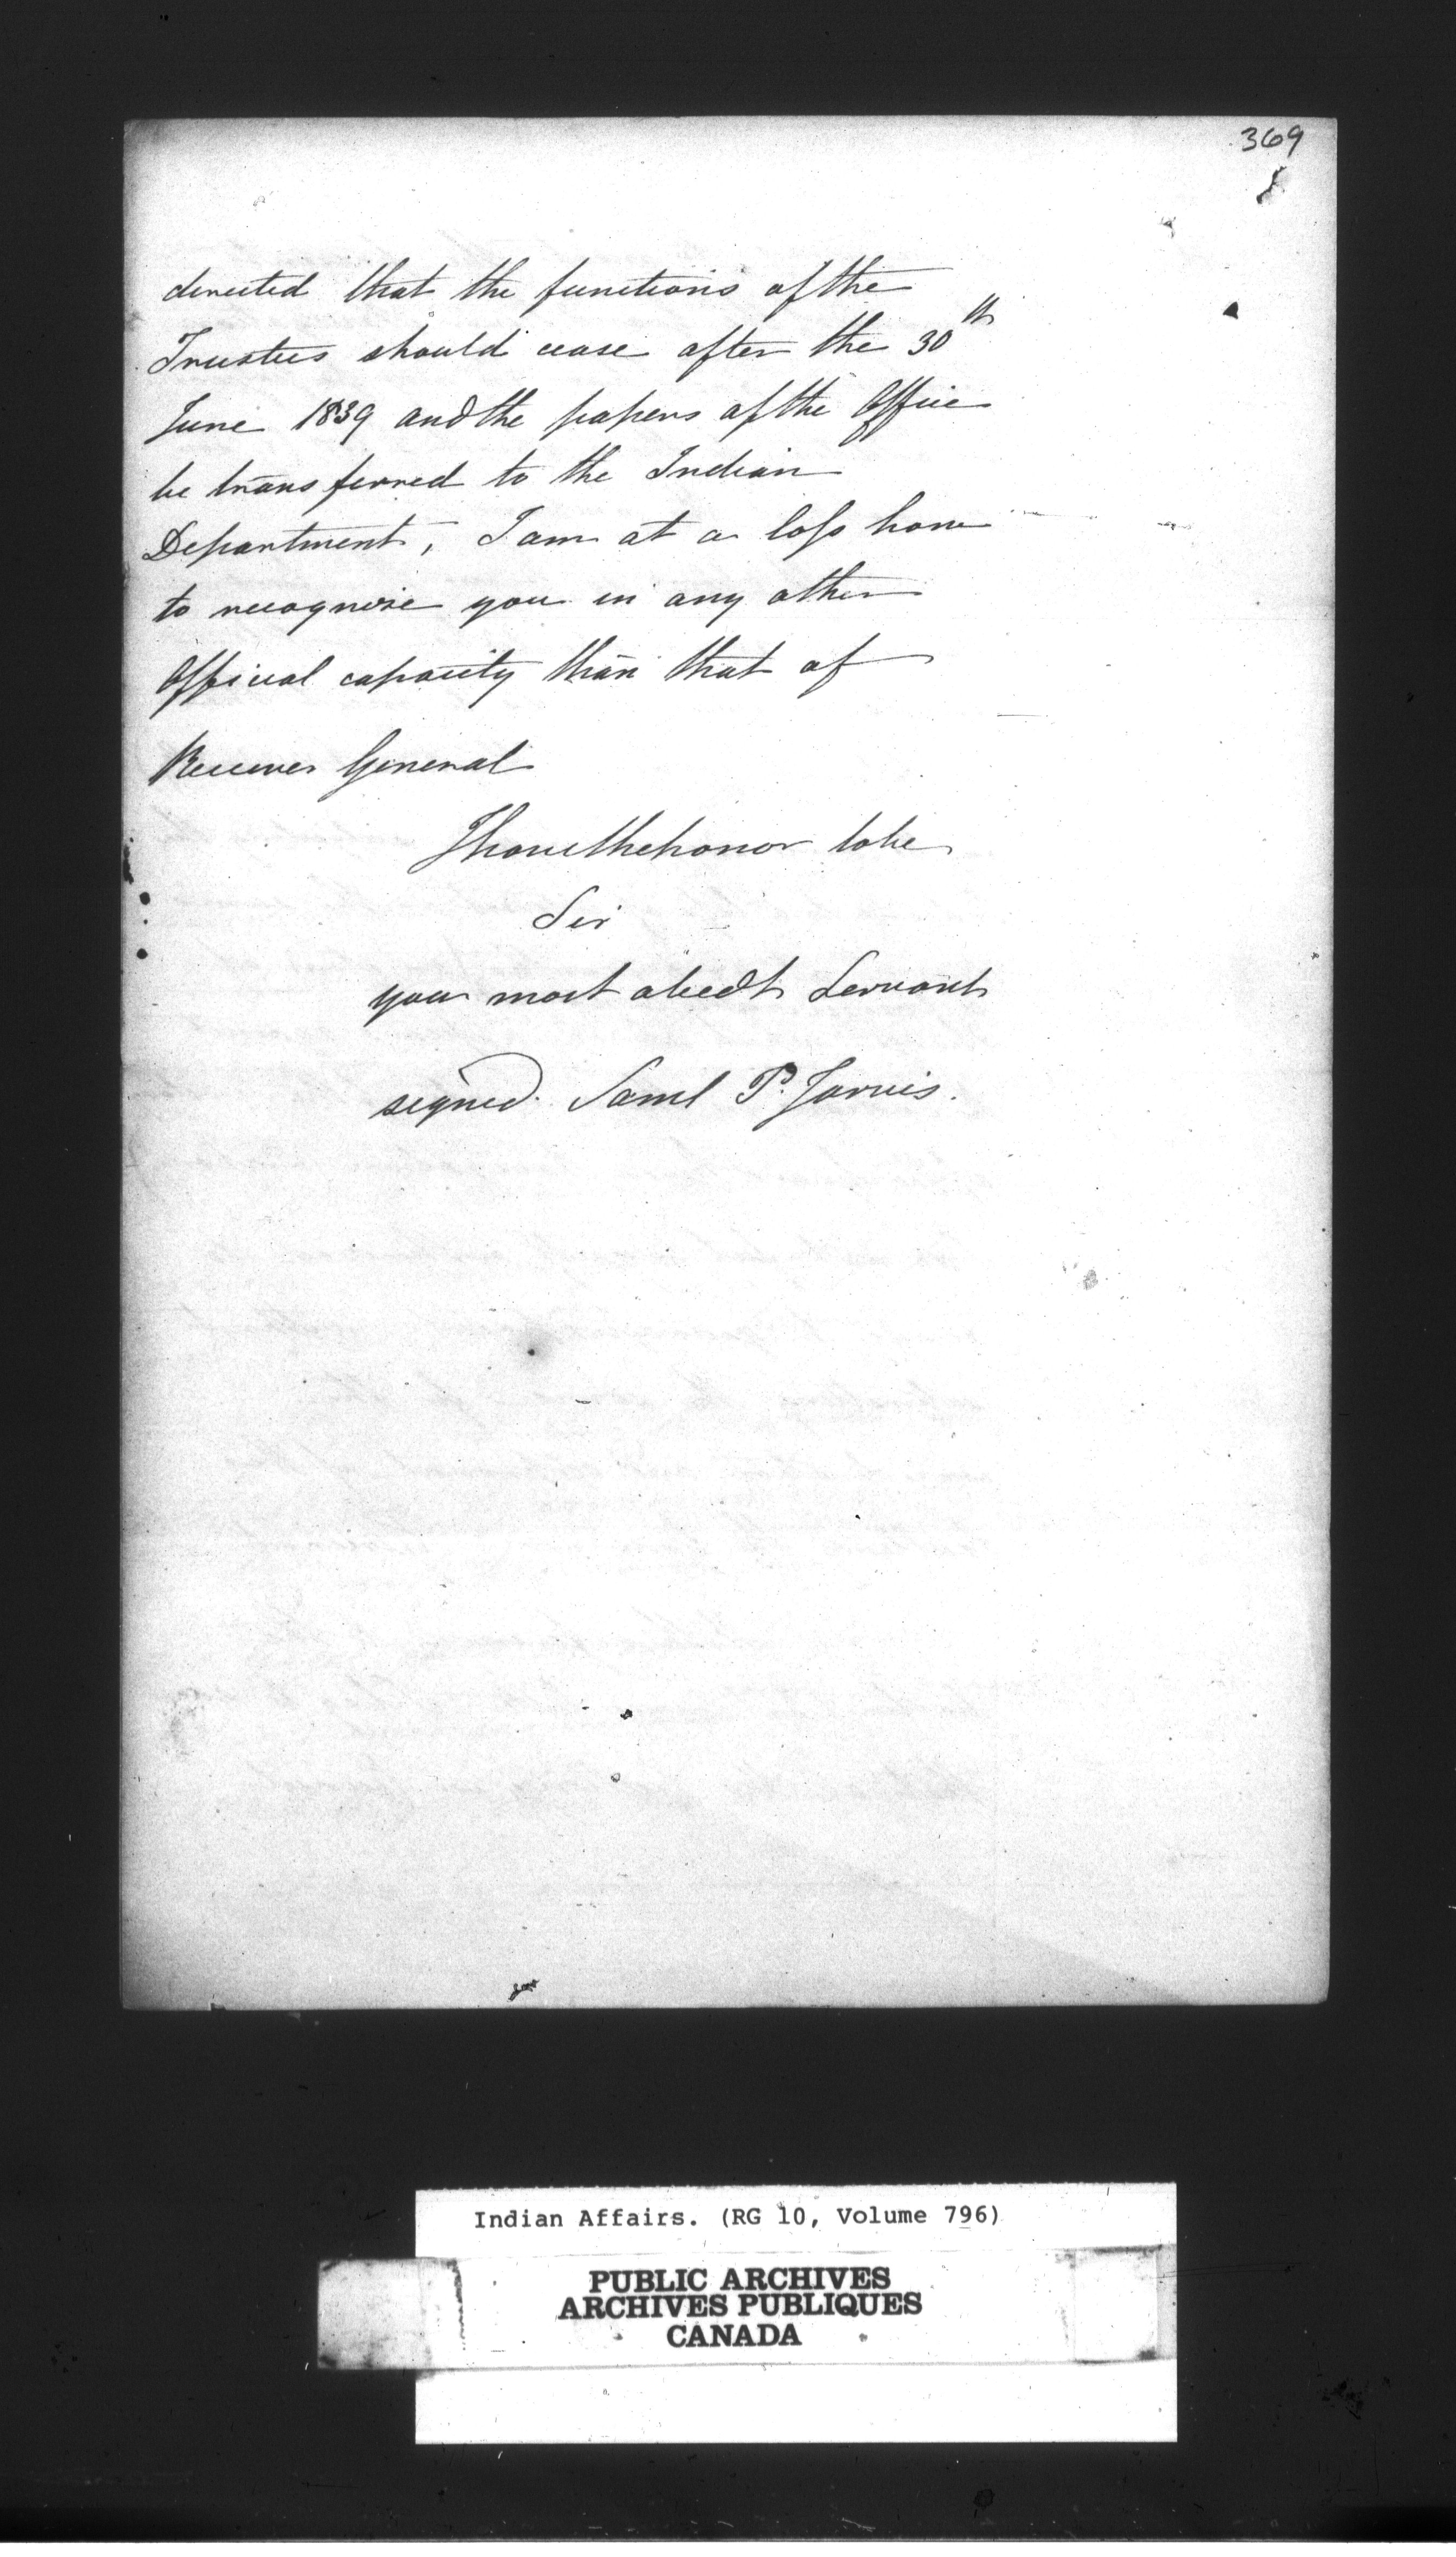 369
directed that the functions of the
Trustees should cease after the 30th
June 1839 and the papers of the Office
be transferred to the Indian
Department, I am at a loss how
to recognise you in any other
Official capacity than that of
Receiver General
I have the honor to be
Sir
your most obedt Servant
signed. Saml P. Jarvis.
Indian Affairs. (RG 10, Volume 796)
PUBLIC ARCHIVES
ARCHIVES PUBLIQUES
CANADA